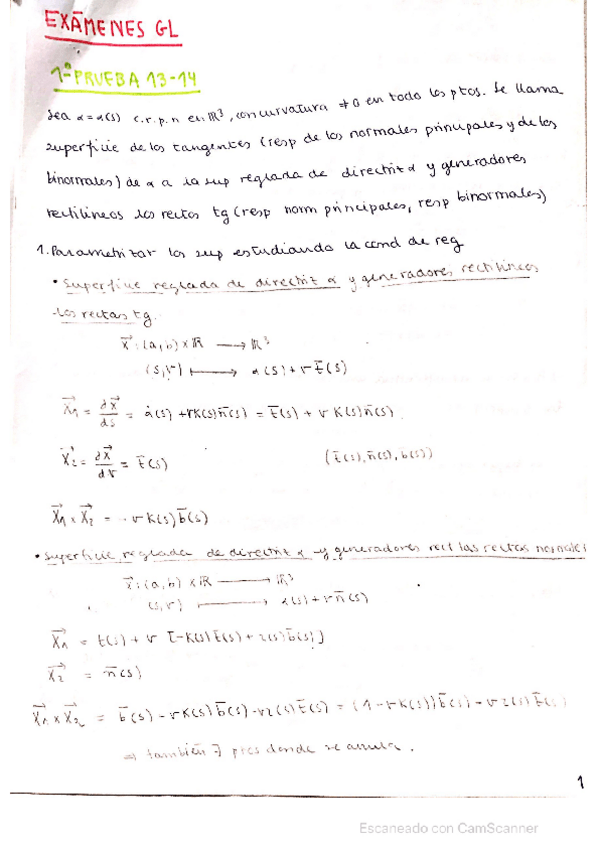 EXÁMENES GL
1ª PRUEBA 13-14
Sea α = α(s) c.r.p.n en ℝ³, con curvatura ≠ 0 en todo los ptos. Se llama
superficie de los tangentes (resp de los normales principales y de los
binormales) de α a la sup reglada de directriz α y generadores
rectilíneos las rectas tg (resp norm principales, resp binormales)
1. Parametrizar las sup estudiando la cond de reg
• Superficie reglada de directriz α y generadores rectilíneos
las rectas tg.
x⃗ : (a,b) × ℝ ⟶ ℝ³
(s,v) ⟼ α(s) + v t̄(s)
X⃗₁ = ∂x⃗/∂s = α̇(s) + v K(s) n̄(s) = t̄(s) + v K(s) n̄(s)
X⃗₂ = ∂x⃗/∂v = t̄(s) (t̄(s), n̄(s), b̄(s))
X⃗₁ × X⃗₂ = - v K(s) b̄(s)
• Superficie reglada de directriz α y generadores rect las rectas normales
x⃗ : (a,b) × ℝ ⟶ ℝ³
(s,v) ⟼ α(s) + v n̄(s)
X⃗₁ = t(s) + v [-K(s) t̄(s) + τ(s) b̄(s)]
X⃗₂ = n̄(s)
X⃗₁ × X⃗₂ = b̄(s) - v K(s) b̄(s) - v τ(s) t̄(s) = (1 - v K(s)) b̄(s) - v τ(s) t̄(s)
⇒ también ∃ ptos donde se anula.
1
Escaneado con CamScanner